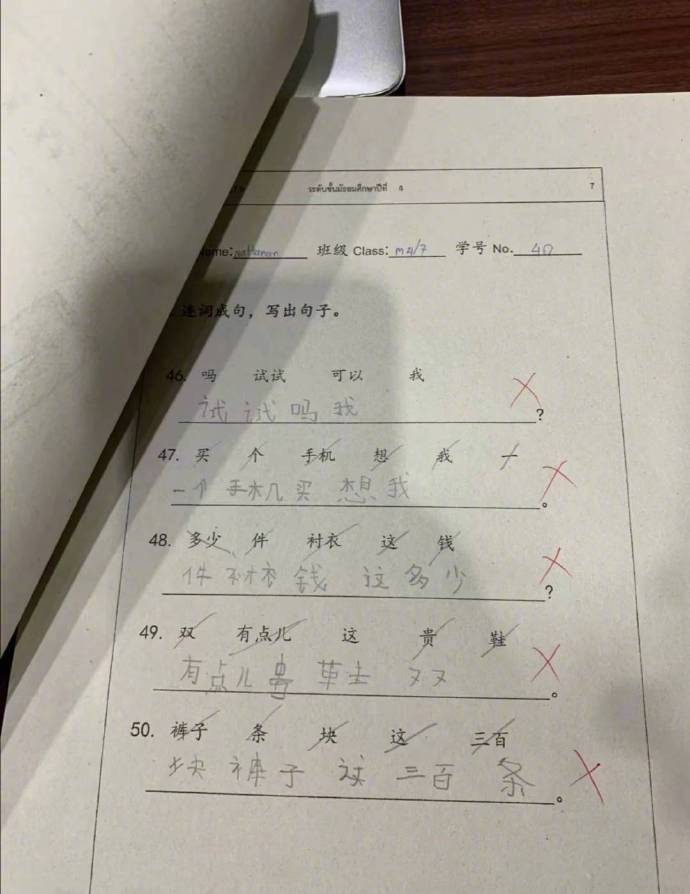 ระดับชั้นมัธยมศึกษาปีที่ 4 7
ame: 班级 Class: m4/7 学号 No. 40
连词成句，写出句子。
46. 吗 试试 可以 我
试试吗我 ?
47. 买 个 手机 想 我 一
一个手机买想我 。
48. 多少 件 衬衣 这 钱
件衬衣钱这多少 ?
49. 双 有点儿 这 贵 鞋
有点儿贵鞋双 。
50. 裤子 条 块 这 三百
块裤子这三百条 。